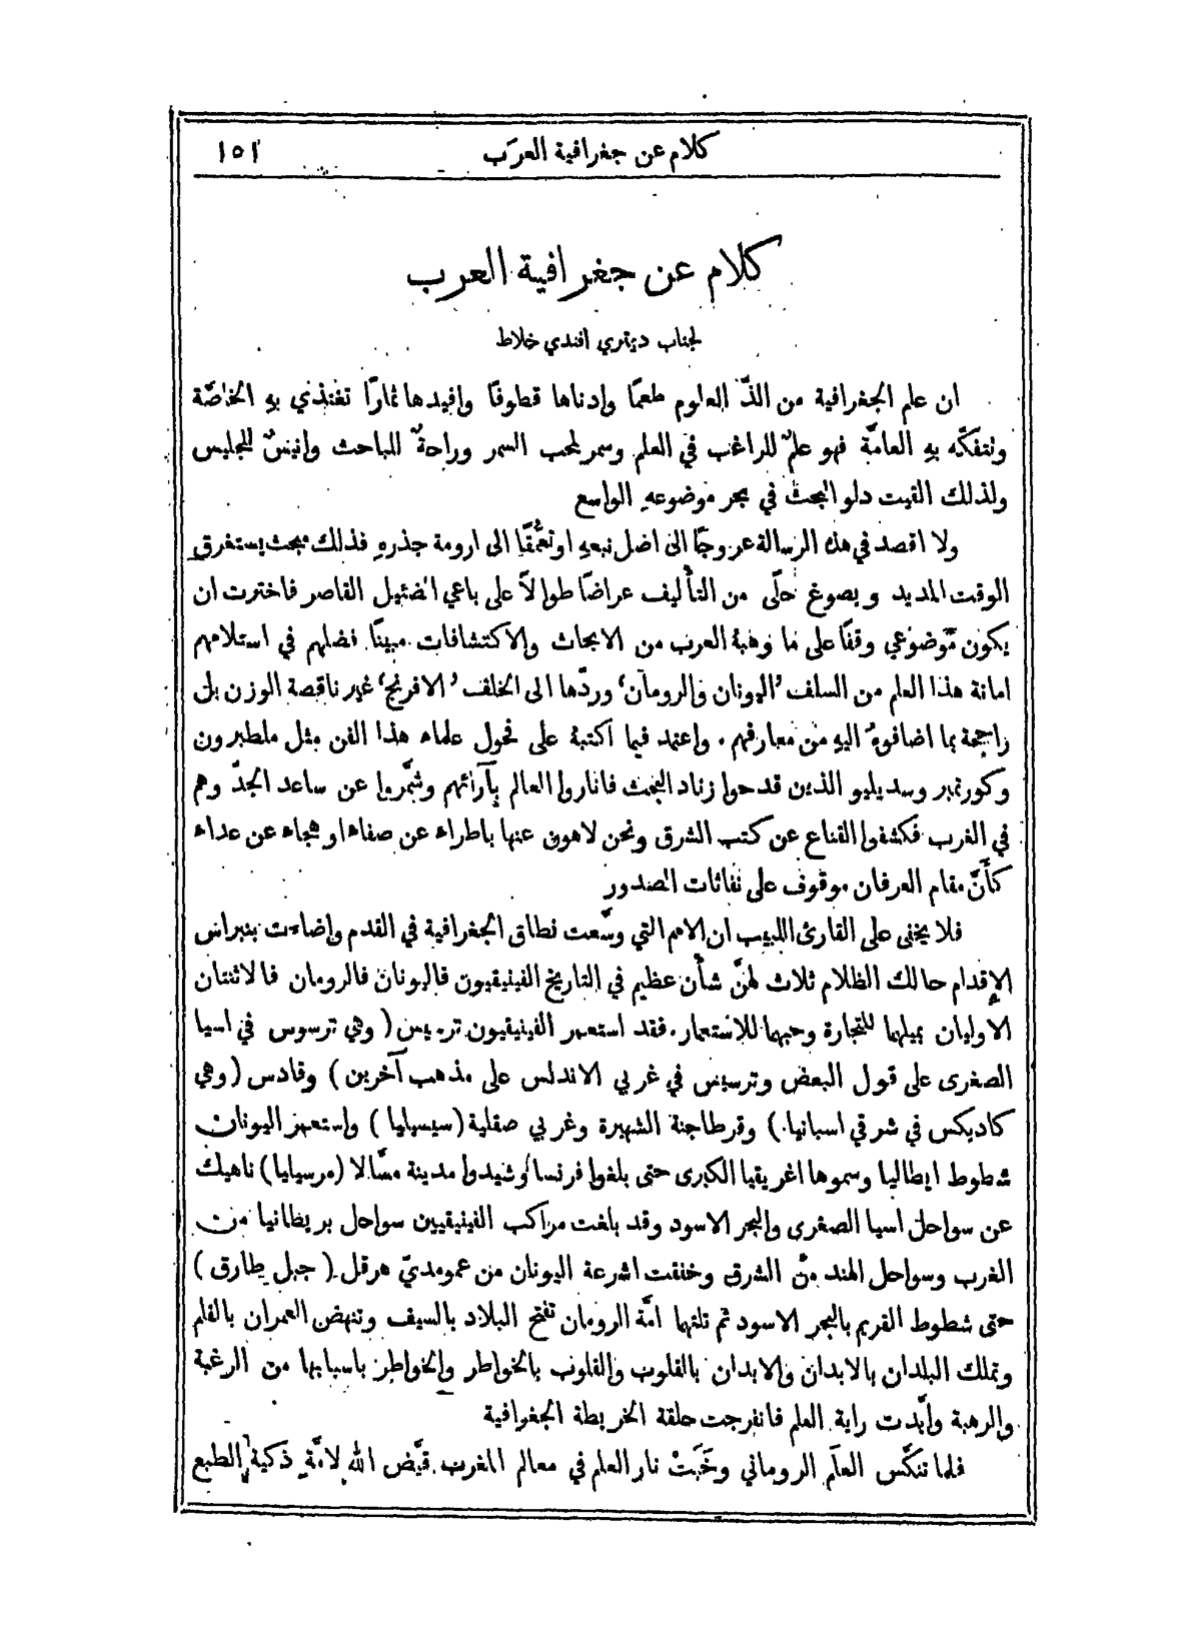 كلام عن جغرافية العرب ١٥١
كلام عن جغرافية العرب
لجناب ديمتري افندي خلاط
ان علم الجغرافية من الذّ العلوم طعمًا وادناها قطوفًا وافيدها ثمارًا تغتذي بهِ الخاصَّة
وتتفكَّه بهِ العامَّة فهو علمٌ للراغب في العلم وسمر لمحب السمر وراحةٌ للباحث وانيسٌ للجليس
ولذلك القيت دلو البحث في بحر موضوعهِ الواسع
ولا اقصد في هذه الرسالة عروجًا الى اصل نبعهِ او تعمُّقًا الى ارومة جذرهِ فذلك مبحث يستغرق
الوقت المديد ويصوغ حلًى من التأليف عراضًا طوالًا على باعي الضئيل القاصر فاخترت ان
يكون موضوعي وقفًا على ما وهبهُ العرب من الابحاث والاكتشافات مبينًا فضلهم في استلامهم
امانة هذا العلم من السلف ‹اليونان والرومان› وردّها الى الخلف ‹الافرنج› غير ناقصة الوزن بل
راجحة بما اضافوهُ اليهِ من معارفهم. واعتمد فيما اكتبهُ على فحول علماء هذا الفن مثل ملطبرون
وكورتمبر وسديليو الذين قدحوا زناد البحث فاناروا العالم بآرائهم وشمَّروا عن ساعد الجدّ وهم
في الغرب فكشفوا القناع عن كتب الشرق ونحن لاهون عنها باطراء عن صفاء او هجاء عن عداء
كأنَّ مقام العرفان موقوف على نفاثات الصدور
فلا يخفى على القارئ اللبيب ان الامم التي وسَّعت نطاق الجغرافية في القدم واضاءت بنبراس
الإقدام حالك الظلام ثلاث لهنَّ شأن عظيم في التاريخ الفينيقيون فاليونان فالرومان فالاثنتان
الاوليان بميلهما للتجارة وحبهما للاستعمار. فقد استعمر الفينيقيون ترسيس (وهي ترسوس في اسيا
الصغرى على قول البعض وترسيس في غربي الاندلس على مذهب آخرين) وقادس (وهي
كاديكس في شرقي اسبانيا) وقرطاجنة الشهيرة وغربي صقلية (سيسيليا) واستعمر اليونان
شطوط ايطاليا وسموها اغريقيا الكبرى حتى بلغوا فرنسا وشيدوا مدينة مسَّالا (مرسيليا) ناهيك
عن سواحل اسيا الصغرى والبحر الاسود وقد بلغت مراكب الفينيقيين سواحل بريطانيا من
الغرب وسواحل الهند من الشرق وخفقت اشرعة اليونان من عمودَي هرقل (جبل طارق)
حتى شطوط القريم بالبحر الاسود ثم تلتهما امَّة الرومان تفتح البلاد بالسيف وتنهض العمران بالقلم
وتملك البلدان بالابدان والابدان بالقلوب والقلوب بالخواطر والخواطر باسبابها من الرغبة
والرهبة وايَّدت راية العلم فانفرجت حلقة الخريطة الجغرافية
فلما تنكَّس العلَم الروماني وخَبَتْ نار العلم في معالم المغرب قيَّض الله لامَّةٍ ذكية الطبع